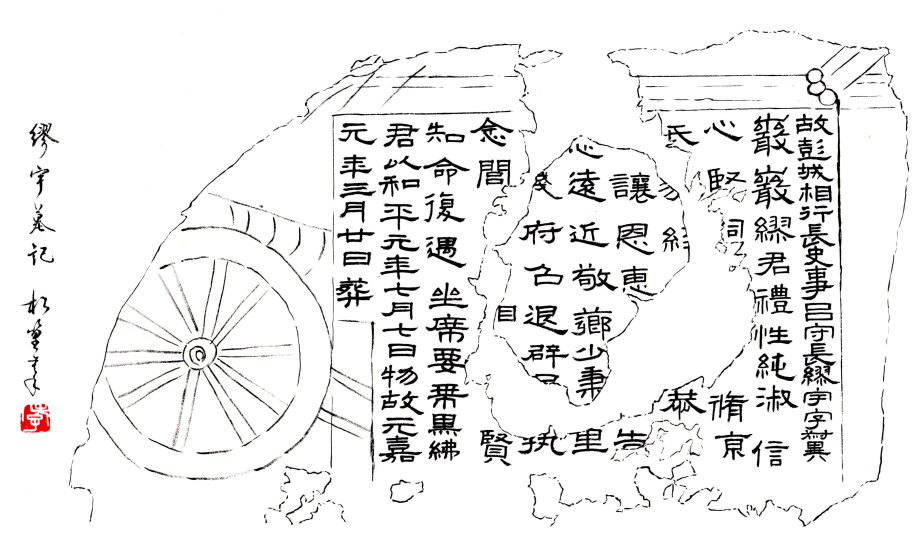 故彭城相行長史事吕守長繆宇字叔異
巖巖繆君禮性純淑信
心堅 脩京
氏 恭
讓恩惠 告
心遠近敬薌少秉 里
府召退辟 执
念閭 賢
知命復遇坐席要棄黑紼
君以和平元年七月七日物故元嘉
元年三月廿日葬
繆宇墓记